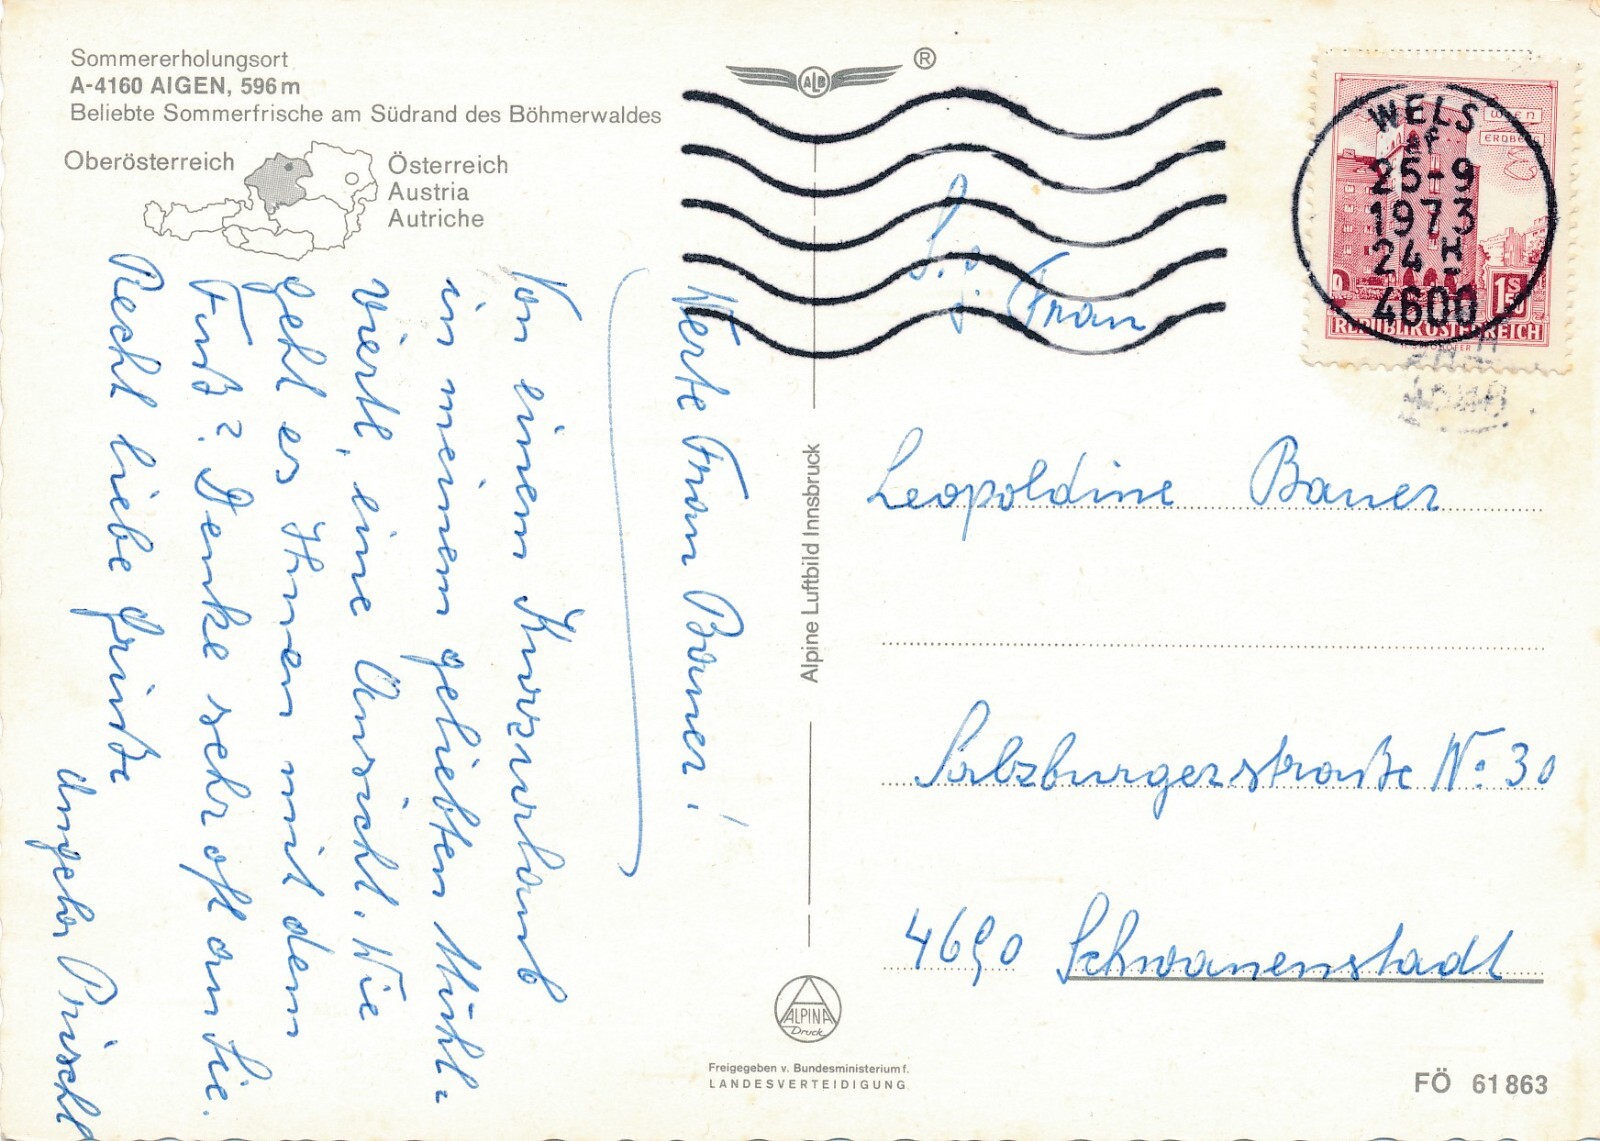 Sommererholungsort
A-4160 AIGEN, 596 m
Beliebte Sommerfrische am Südrand des Böhmerwaldes
Oberösterreich
Österreich
Austria
Autriche
ALB
®
WELS
25-9
1973
24 H
4600
WIEN
ERDBERG
1S50
REPUBLIK ÖSTERREICH
Werte Frau Bauer!
Von einem Kurzurlaub
in meinem geliebten Mühl-
viertl, eine Ansicht. Wie
geht es Ihnen mit dem
Fuß? Denke sehr oft an Sie.
Recht liebe Grüße
Alpine Luftbild Innsbruck
Frau
Leopoldine Bauer
Salzburgerstraße No 30
4690 Schwanenstadt
ALPINA
Druck
Freigegeben v. Bundesministerium f.
LANDESVERTEIDIGUNG
FÖ 61 863